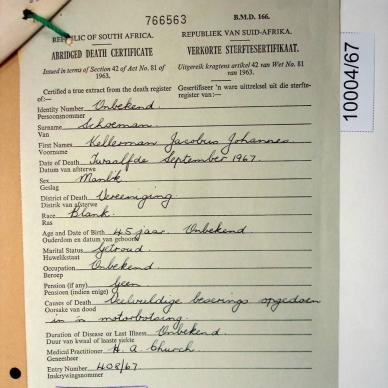 766563
B.M.D. 166.
REPUBLIC OF SOUTH AFRICA.
REPUBLIEK VAN SUID-AFRIKA.
ABRIDGED DEATH CERTIFICATE
VERKORTE STERFTESERTIFIKAAT.
Issued in terms of Section 42 of Act No. 81 of 1963.
Uitgereik kragtens artikel 42 van Wet No. 81 van 1963.
Certified a true extract from the death register of:—
Gesertifiseer 'n ware uittreksel uit die sterfteregister van:—
Identity Number Onbekend.
Persoonsnommer
Surname Schoeman
Van
First Names Kellerman Jacobus Johannes
Voorname
Date of Death Twaalfde September 1967.
Datum van afsterwe
Sex Manlik
Geslag
District of Death Vereeniging
Distrik van afsterwe
Race Blank.
Ras
Age and Date of Birth 45 jaar. Onbekend
Ouderdom en datum van geboorte
Marital Status Getroud.
Huwelikstaat
Occupation Onbekend.
Beroep
Pension (if any) Geen
Pensioen (indien enige)
Causes of Death Veelvuldige beserings opgedoen
Oorsake van dood
in 'n motorbotsing.
Duration of Disease or Last Illness Onbekend.
Duur van kwaal of laaste siekte
Medical Practitioner H. A. Church.
Geneesheer
Entry Number 408/67
Inskrywingsnommer
10004/67